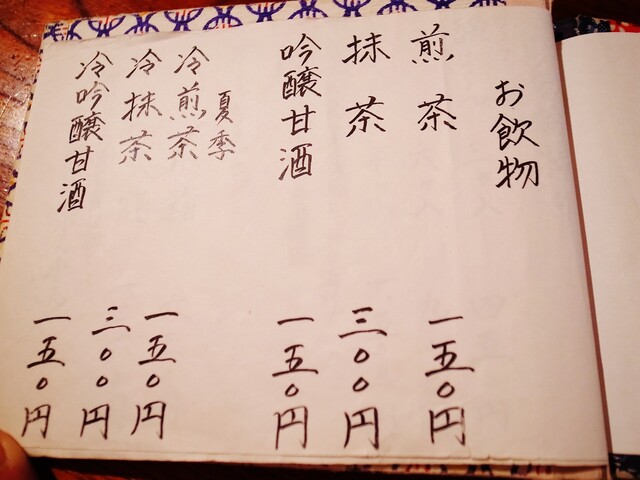 お飲物
煎茶 一五〇円
抹茶 三〇〇円
吟醸甘酒 一五〇円
夏季
冷煎茶 一五〇円
冷抹茶 三〇〇円
冷吟醸甘酒 一五〇円